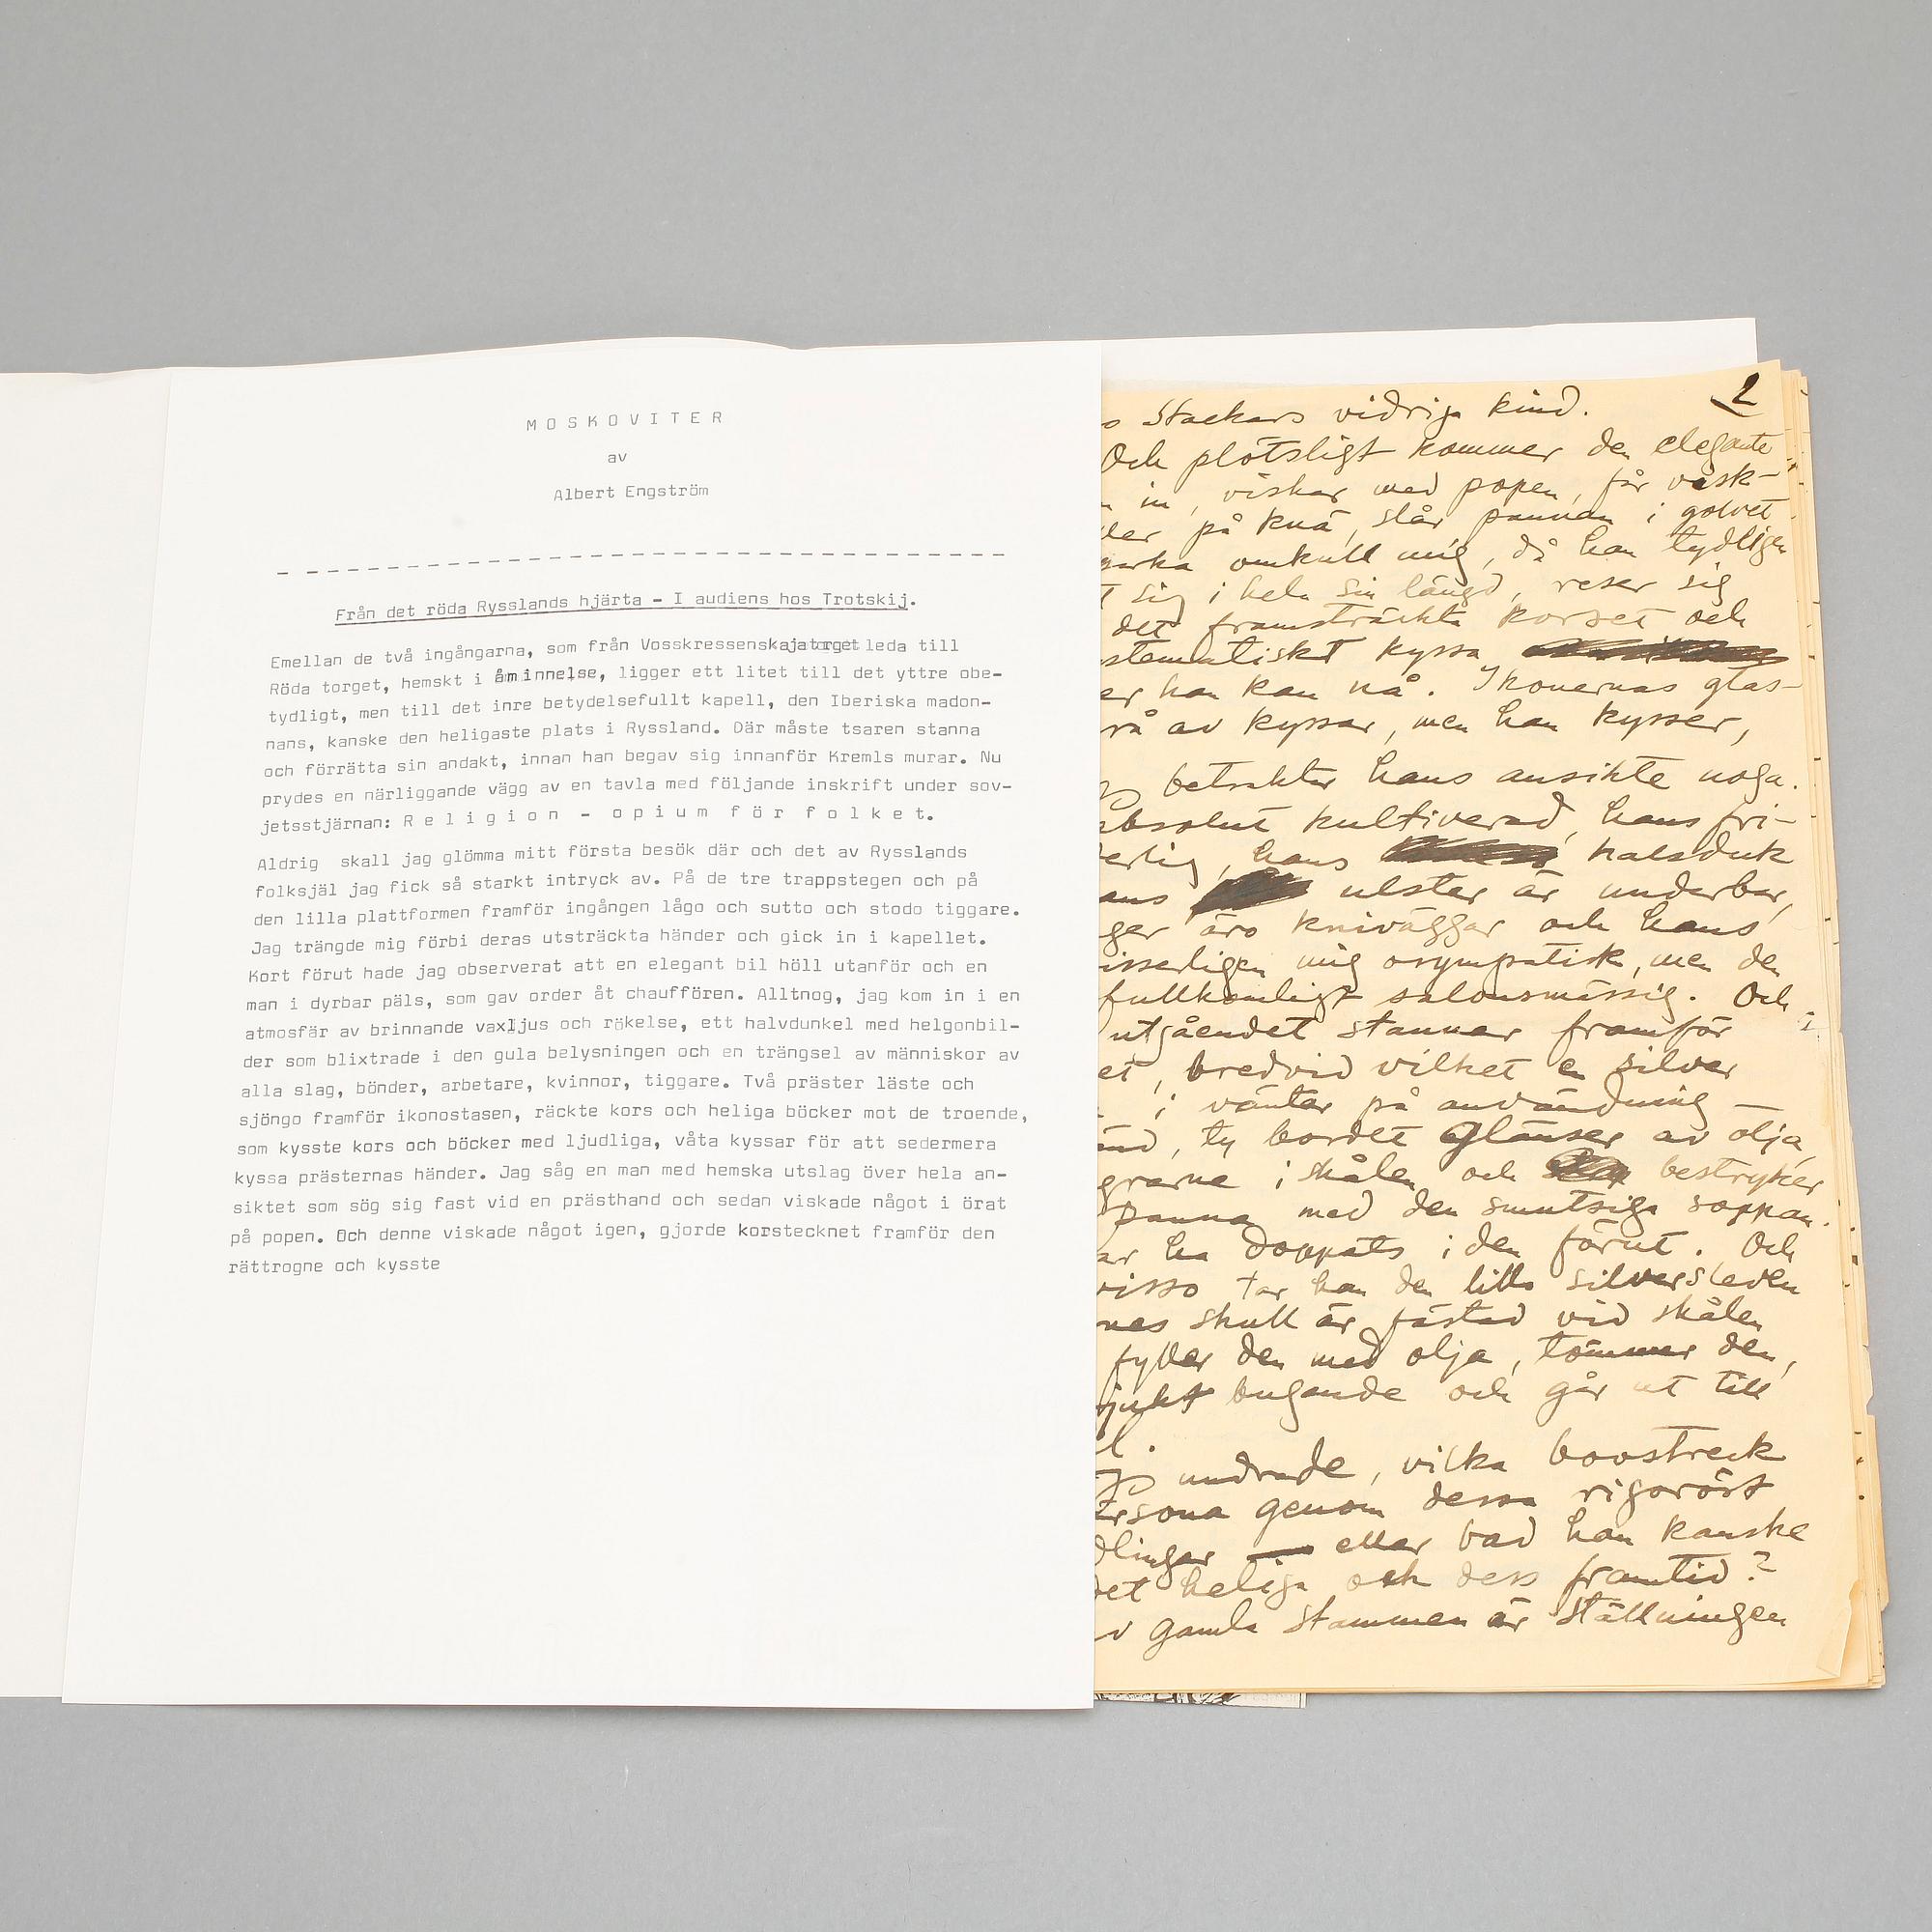 MOSKOVITER
av
Albert Engström
Från det röda Rysslands hjärta - I audiens hos Trotskij.
Emellan de två ingångarna, som från Vosskressenskajatorget leda till
Röda torget, hemskt i åminnelse, ligger ett litet till det yttre obe-
tydligt, men till det inre betydelsefullt kapell, den Iberiska madon-
nans, kanske den heligaste plats i Ryssland. Där måste tsaren stanna
och förrätta sin andakt, innan han begav sig innanför Kremls murar. Nu
prydes en närliggande vägg av en tavla med följande inskrift under sov-
jetsstjärnan: Religion - opium för folket.
Aldrig skall jag glömma mitt första besök där och det av Rysslands
folksjäl jag fick så starkt intryck av. På de tre trappstegen och på
den lilla plattformen framför ingången lågo och sutto och stodo tiggare.
Jag trängde mig förbi deras utsträckta händer och gick in i kapellet.
Kort förut hade jag observerat att en elegant bil höll utanför och en
man i dyrbar päls, som gav order åt chauffören. Alltnog, jag kom in i en
atmosfär av brinnande vaxljus och rökelse, ett halvdunkel med helgonbil-
der som blixtrade i den gula belysningen och en trängsel av människor av
alla slag, bönder, arbetare, kvinnor, tiggare. Två präster läste och
sjöngo framför ikonostasen, räckte kors och heliga böcker mot de troende,
som kysste kors och böcker med ljudliga, våta kyssar för att sedermera
kyssa prästernas händer. Jag såg en man med hemska utslag över hela an-
siktet som sög sig fast vid en prästhand och sedan viskade något i örat
på popen. Och denne viskade något igen, gjorde korstecknet framför den
rättrogne och kysste
2
stackars vidriga kind.
Och plötsligt kommer den elegante
in, viskar med popen, får visk-
på knä, slår pannan i golvet
omkull mig, då han tydligen
sig i hela sin längd, reser sig
det framsträckta korset och
kyssa
er han kan nå. Ikonernas glas-
av kyssar, men han kysser,
betraktar hans ansikte noga.
absolut kultiverad, hans fri-
hans halsduk
ulster är underbar,
äro kniväggar och hans
mig osympatisk, men den
fullkomligt salonsmässig. Och
utgåendet stannar framför
et, bredvid vilket en silver
i väntar på användning —
ty bordet glänser av olja,
i skålen och bestryker
panna med den smutsiga soppan.
ha doppats i den förut. Och
tar han den lilla silversleven
skull är fästad vid skålen
fyller den med olja, tömmer den,
bugande och går ut till
undrade, vilka bovstreck
genom dessa rigoröst
— eller bad han kanske
det heliga och dess framtid?
gamla stammen är ställningen